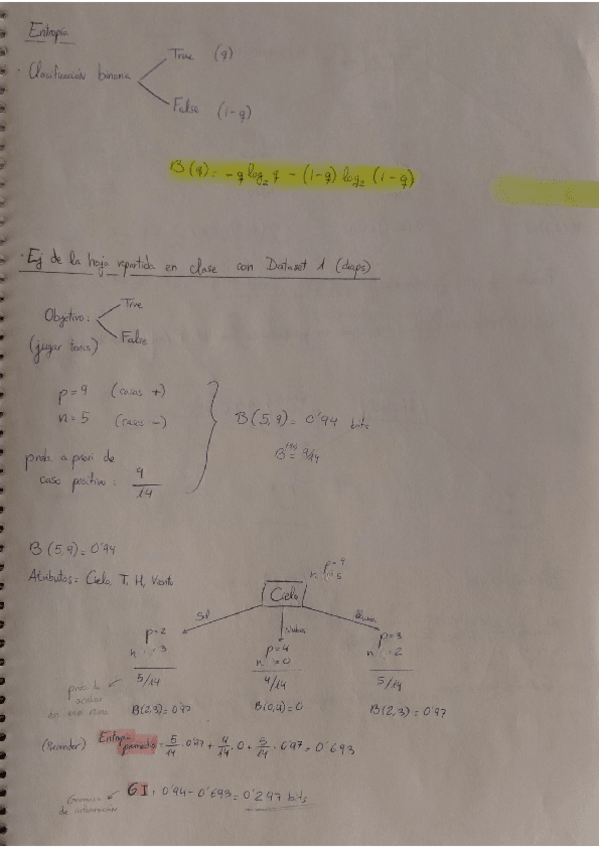 Entropía
· Clasificación binaria
True (q)
False (1-q)
B(q) = -q log₂ q - (1-q) log₂ (1-q)
· Ej de la hoja repartida en clase con Dataset 1 (diaps)
Objetivo:
(jugar tenis)
True
False
p=9 (casos +)
n=5 (casos -)
B(5,9) = 0'94 bits
prob. a priori de
caso positivo: 9/14
9/14
B(5,9) = 0'94
Atributos: Cielo, T, H, Viento
p=9
n 5
Cielo
Sol
Nubes
Lluvia
p=2
n = 3
5/14
p=4
n = 0
4/14
p=3
n = 2
5/14
prob. de
acabar
en esa rama
B(2,3) = 0'97
B(0,4) = 0
B(2,3) = 0'97
(Recordar) Entropía promedio = 5/14 · 0'97 + 4/14 · 0 + 5/14 · 0'97 = 0'693
GI: 0'94 - 0'693 = 0'247 bits
Ganancia
de información